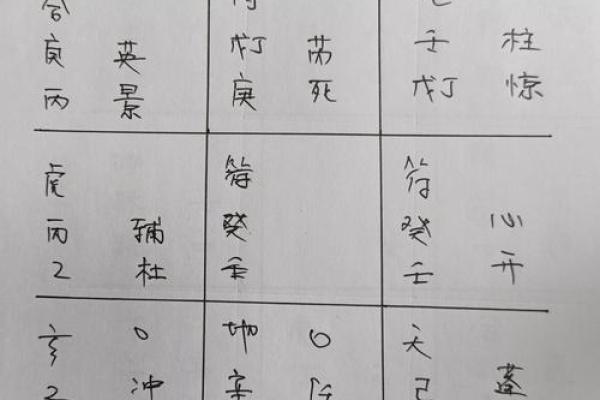 合
英 戊丁 芮 壬 柱
丙 景 庚 死 戊丁 惊
虎 符 符
丙 辅 癸 癸 心
乙 杜 壬 壬 开
玄 O 地 O 天
乙 冲 辛 己 蓬